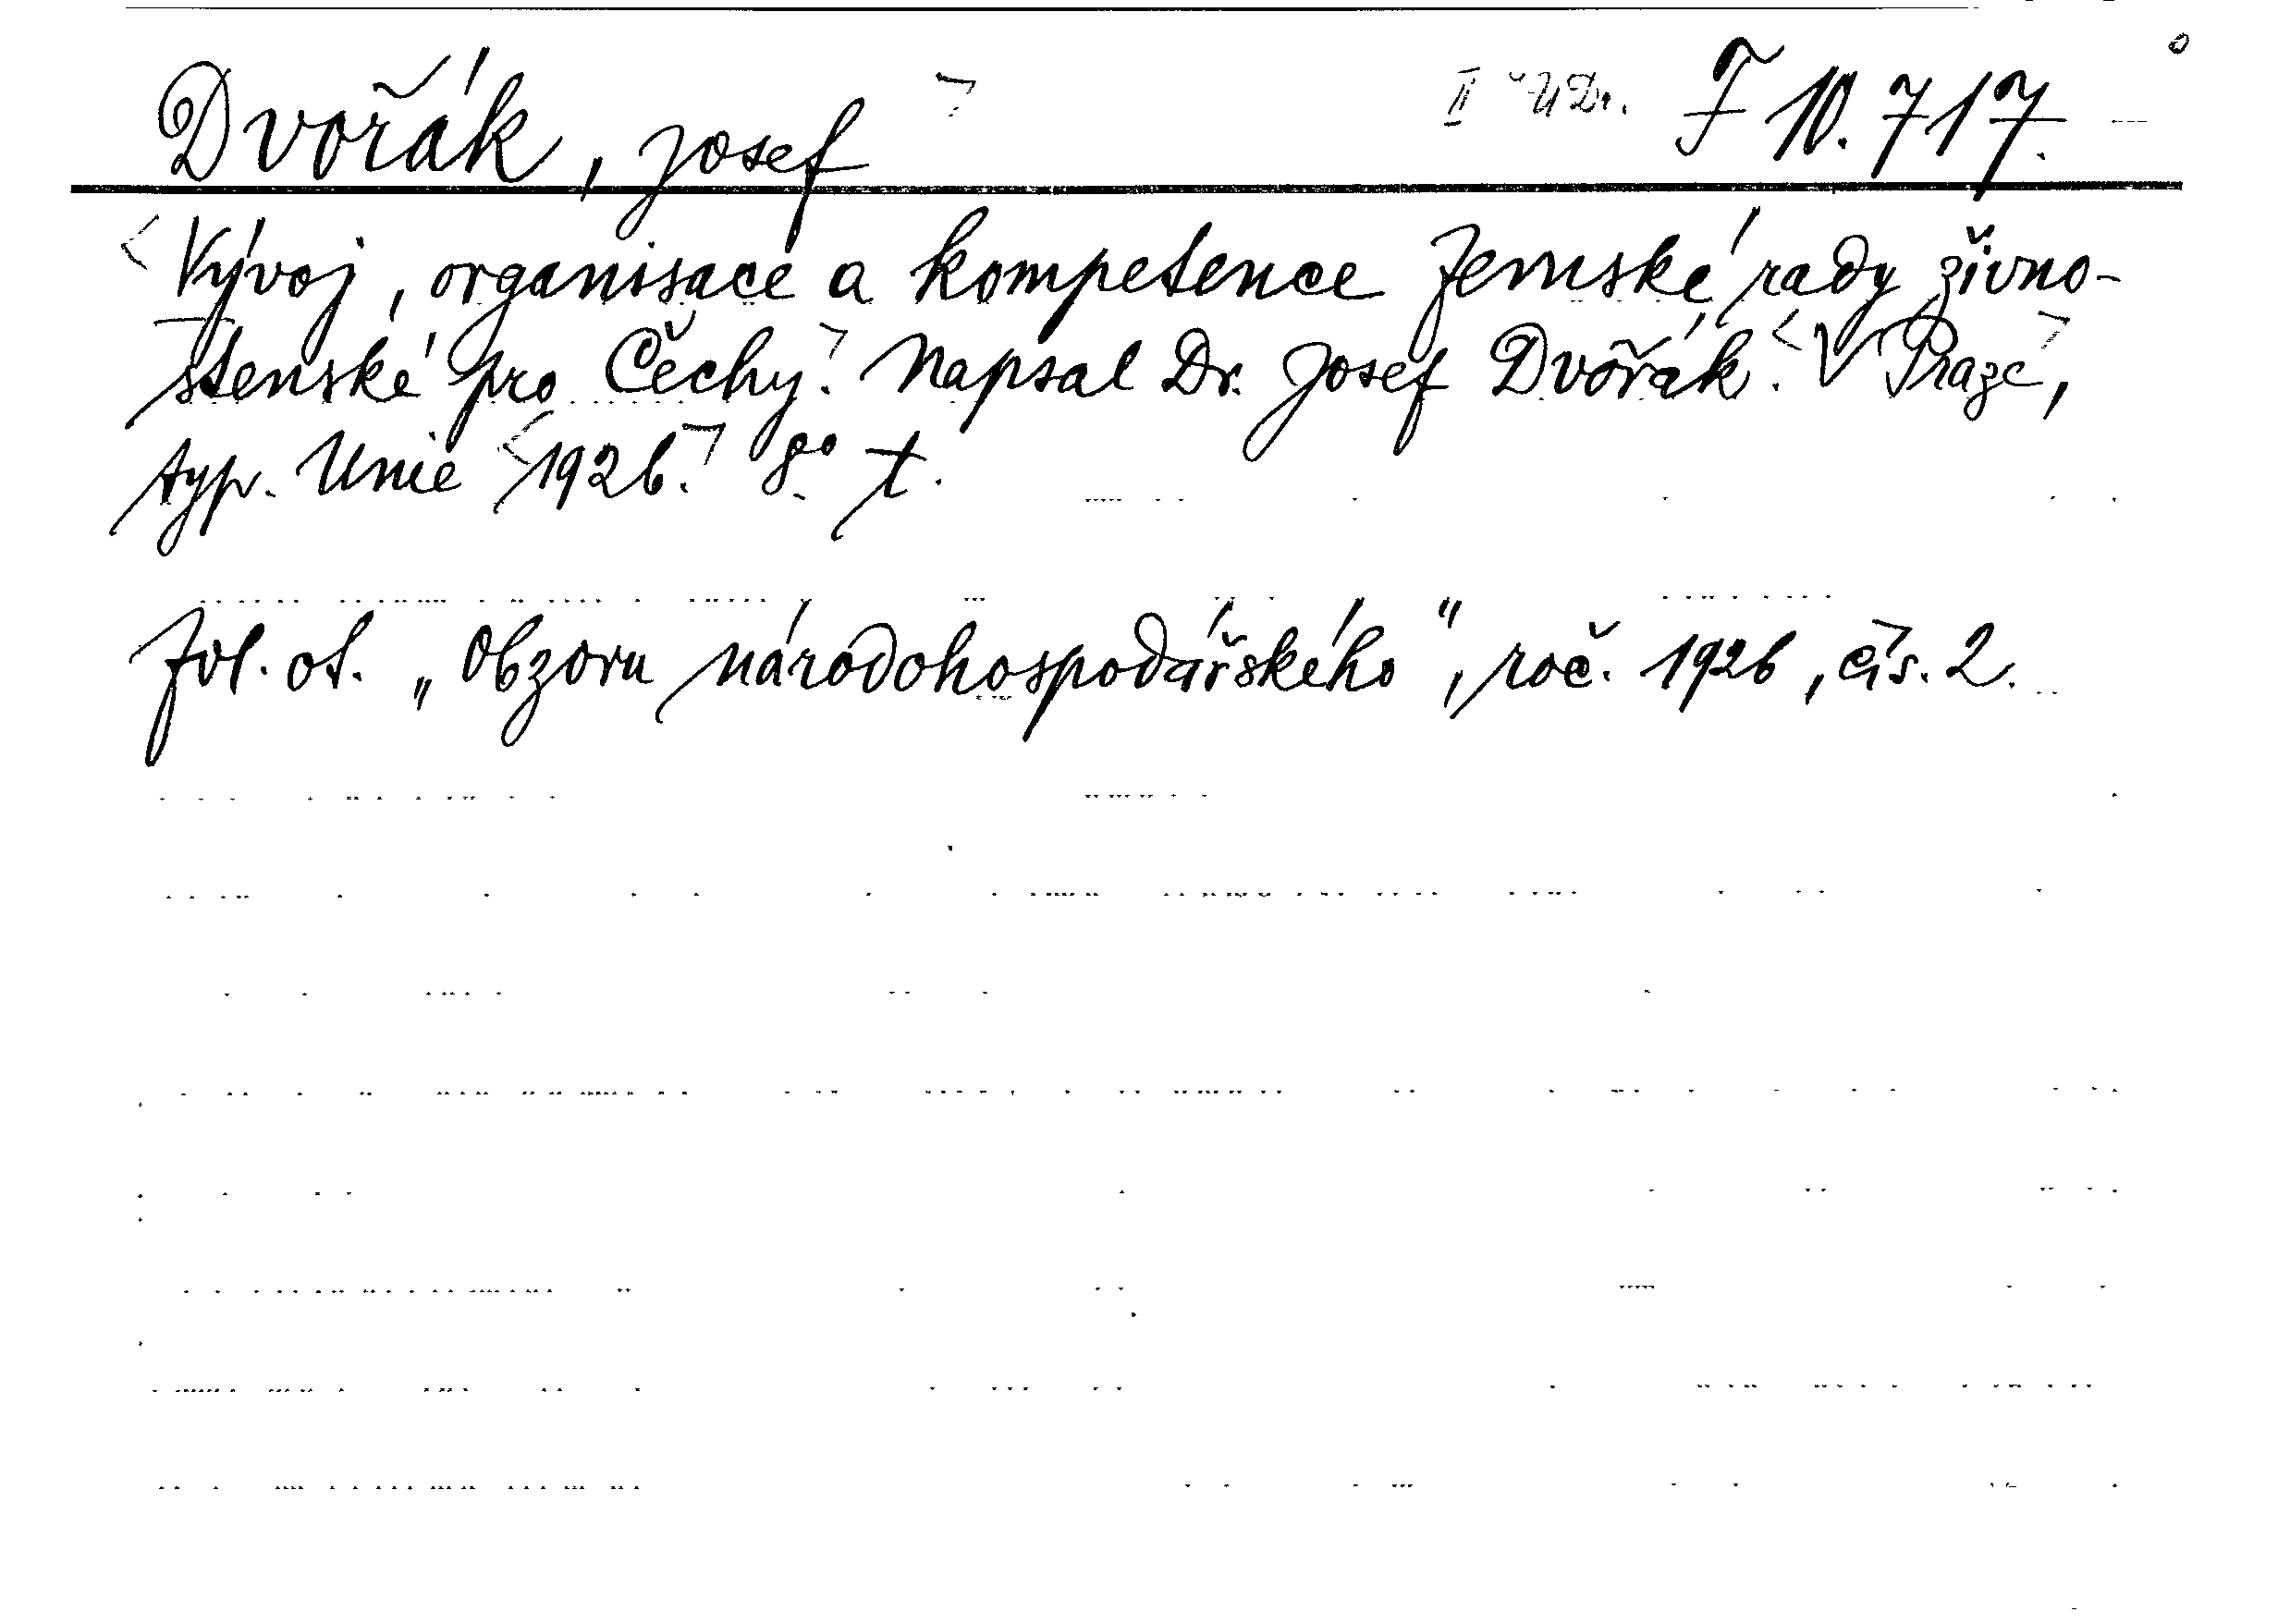 Dvořák, Josef II UDr. F 10.717.
Vývoj, organisace a kompetence Zemské rady živno-
stenské pro Čechy. Napsal Dr. Josef Dvořák. V Praze,
typ. Unie 1926. 8° t.
Zvl. ot. „Obzoru národohospodářského", roč. 1926, čís. 2.